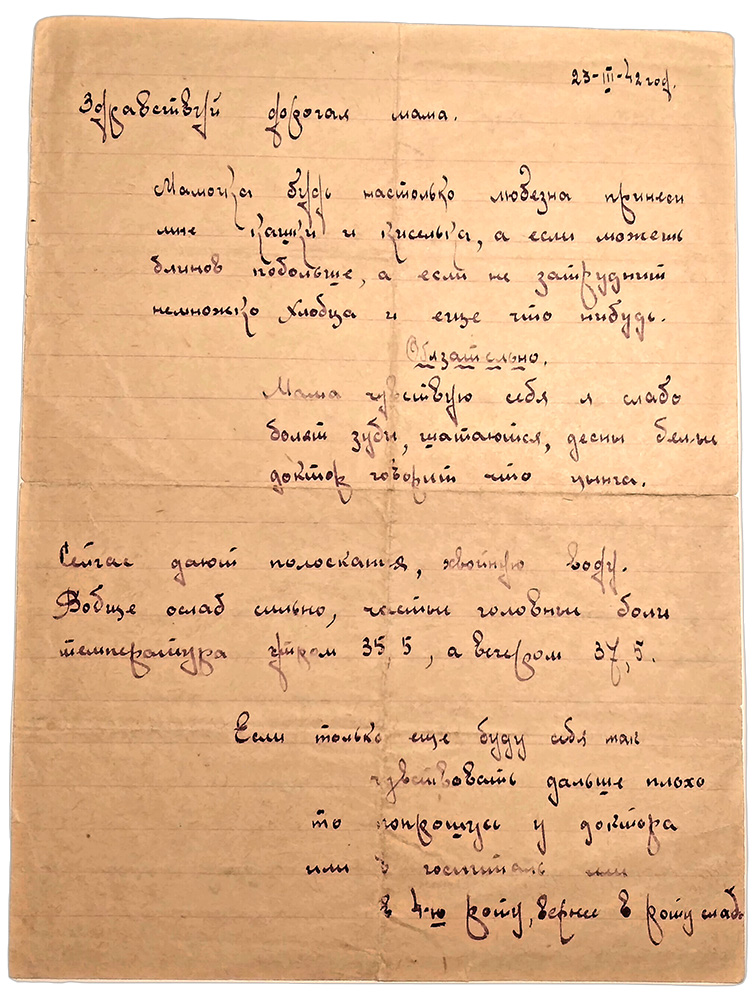 23-III-42 год.
Здравствуй дорогая мама.
Мамочка будь настолько любезна принеси
мне кашки и киселька, а если можешь
блинов побольше, а если не затруднит
немножко хлебца и еще что нибудь.
Обязательно.
Мама чувствую себя я слабо
болят зубы, шатаются, десны белые
доктор говорит что цынга.
Сейчас дают полоскания, хвойную воду.
Вобще ослаб сильно, частые головные боли
температура утром 35,5, а вечером 37,5.
Если только еще буду себя так
чувствовать дальше плохо
то попрошусь у доктора
или в госпиталь или
в 4-ю роту, вернее в роту слабо